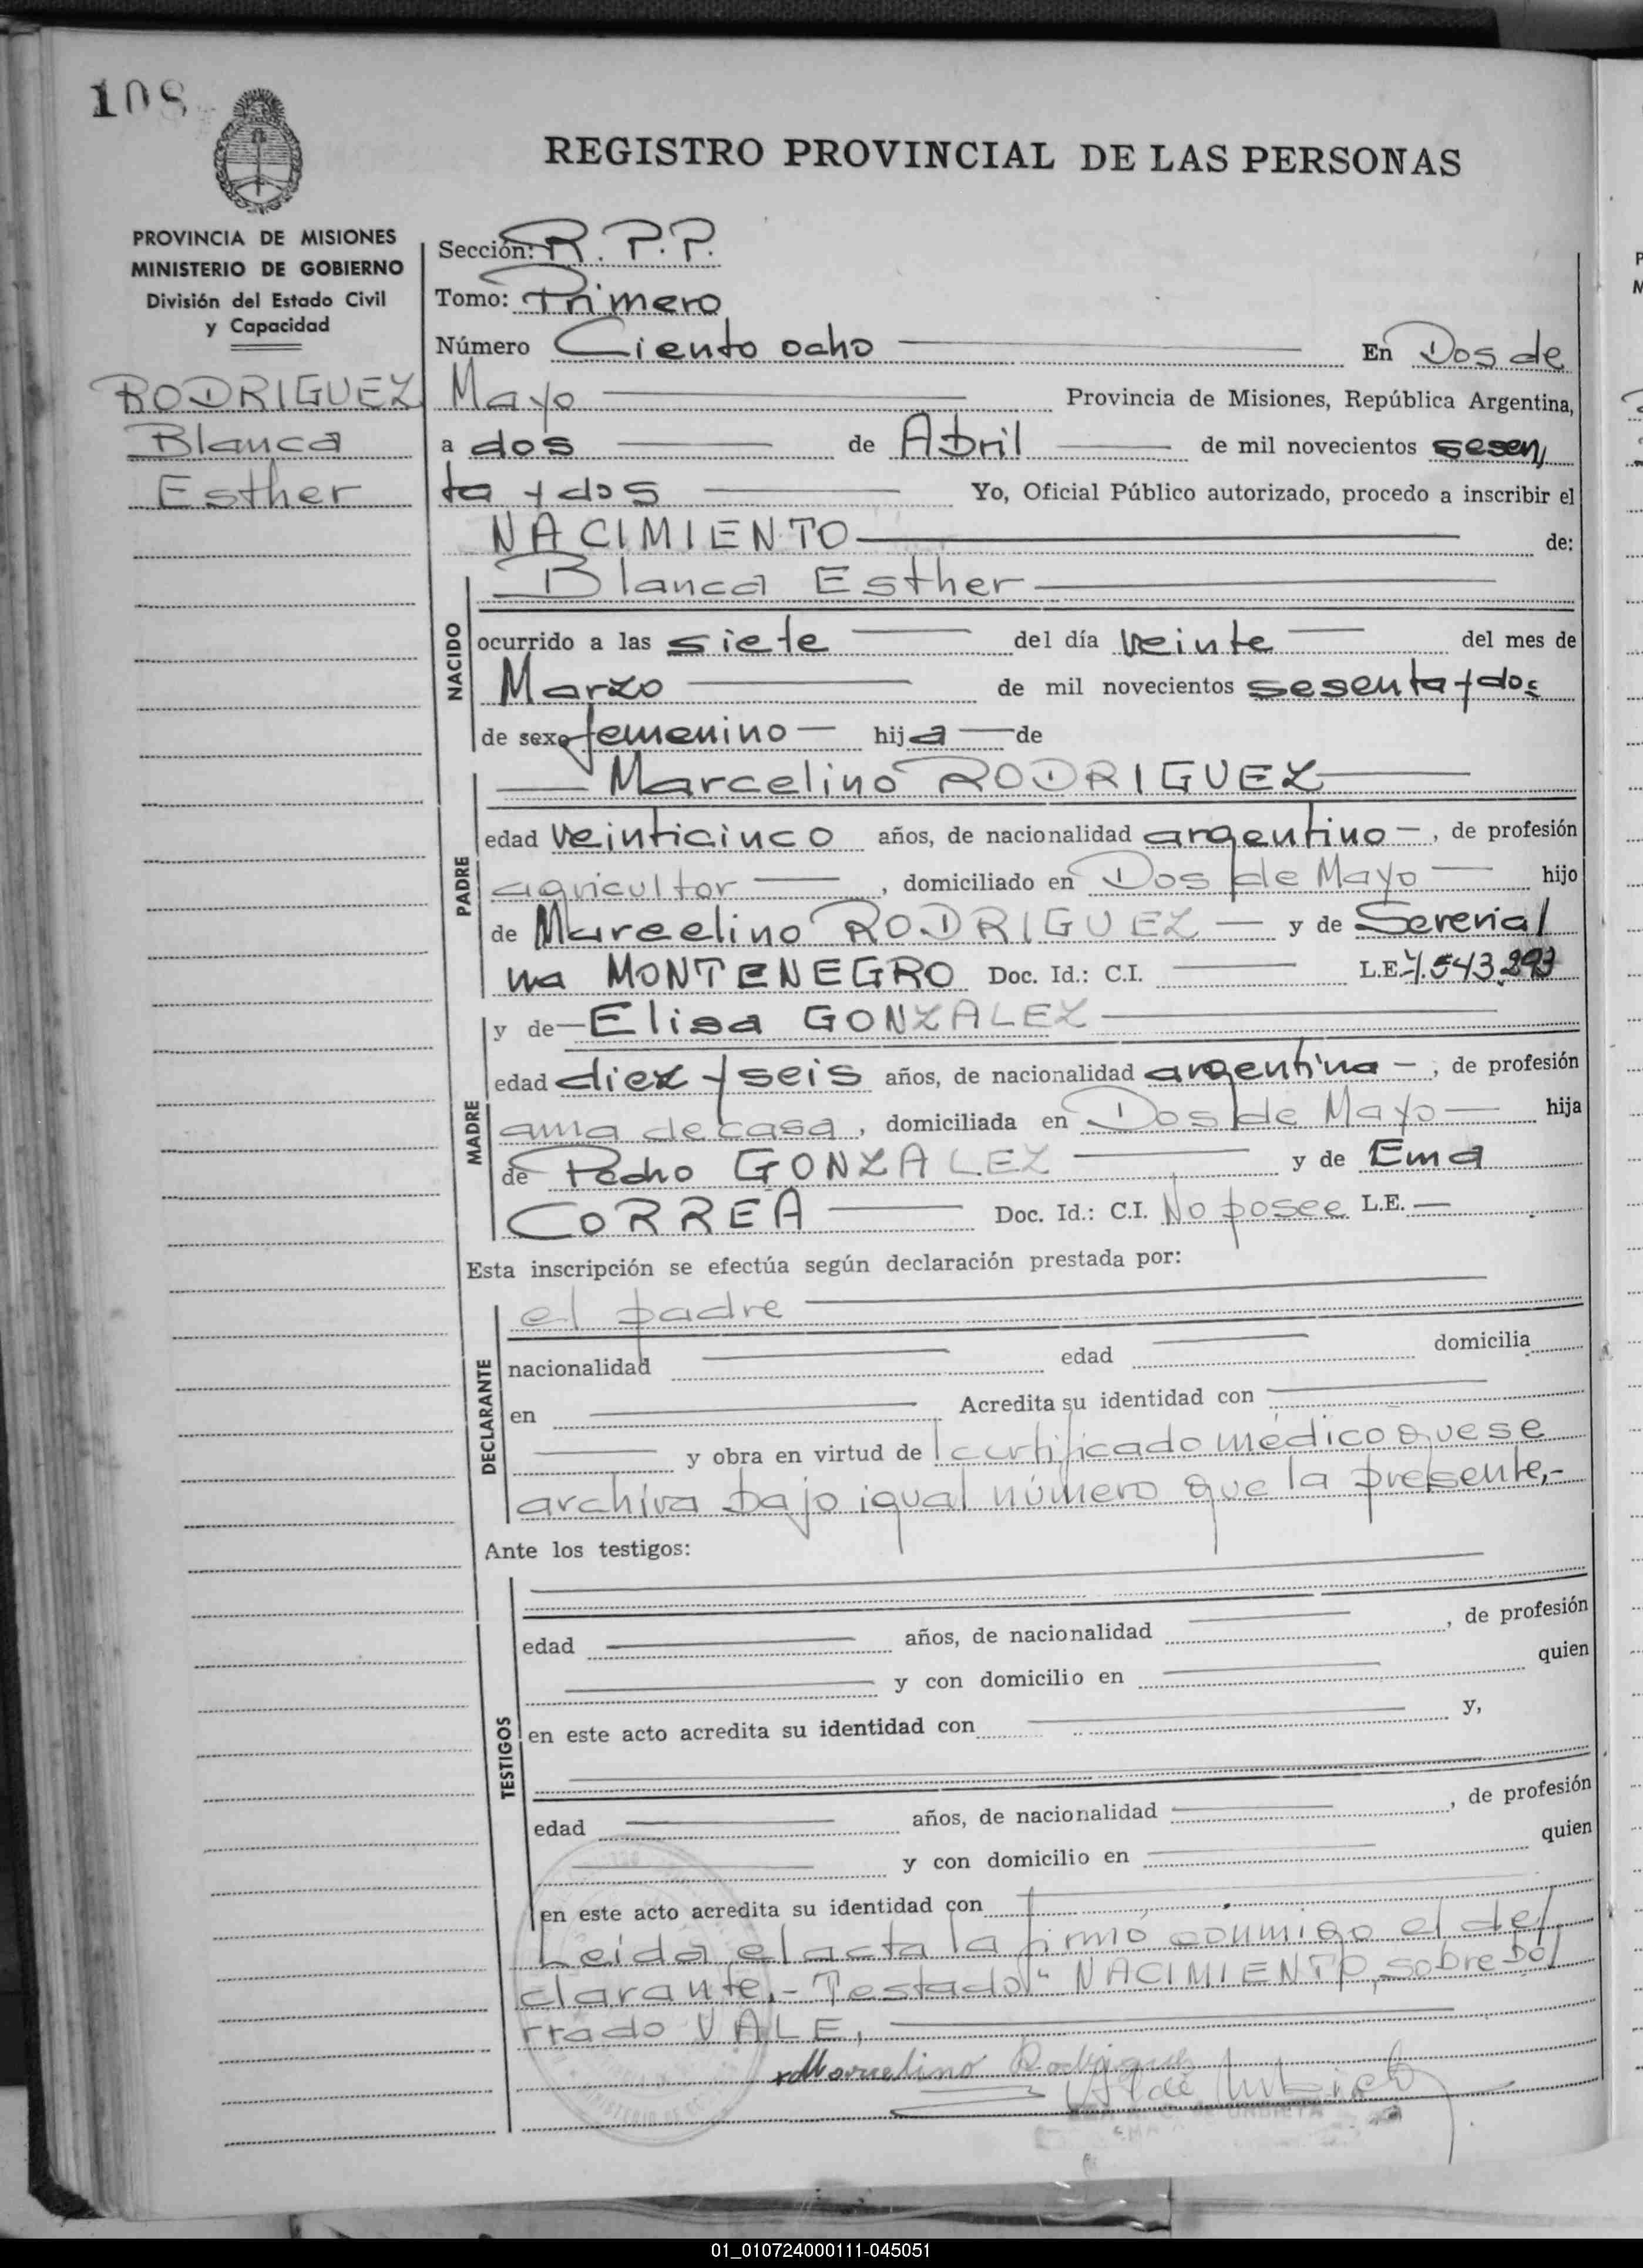 108
REGISTRO PROVINCIAL DE LAS PERSONAS
PROVINCIA DE MISIONES
MINISTERIO DE GOBIERNO
División del Estado Civil
y Capacidad
RODRIGUEZ
Blanca
Esther
Sección: R. P. P.
Tomo: Primero
Número Ciento ocho En Dos de
Mayo Provincia de Misiones, República Argentina,
a dos de Abril de mil novecientos sesen
ta y dos Yo, Oficial Público autorizado, procedo a inscribir el
NACIMIENTO de:
NACIDO
Blanca Esther
ocurrido a las siete del día veinte del mes de
Marzo de mil novecientos sesenta y dos
de sexo femenino hija de
PADRE
Marcelino RODRIGUEZ
edad veinticinco años, de nacionalidad argentino, de profesión
agricultor, domiciliado en Dos de Mayo hijo
de Marcelino RODRIGUEZ y de
na MONTENEGRO Doc. Id.: C.I. L.E.
MADRE
y de Elisa GONZALEZ
edad diez y seis años, de nacionalidad argentina, de profesión
ama de casa, domiciliada en Dos de Mayo hija
de Pedro GONZALEZ y de Ema
CORREA Doc. Id.: C.I. No posee L.E.
Esta inscripción se efectúa según declaración prestada por:
DECLARANTE
el padre
nacionalidad edad domicilia
en Acredita su identidad con
y obra en virtud de certificado médico que se
archiva bajo igual número que la presente.-
Ante los testigos:
TESTIGOS
edad años, de nacionalidad , de profesión
y con domicilio en quien
en este acto acredita su identidad con y,
edad años, de nacionalidad , de profesión
y con domicilio en quien
en este acto acredita su identidad con
Leída el acta la firmó conmigo el de
clarante.- Testado "NACIMIENTO, sobre bo
rrado VALE.
Marcelino Rodriguez
01_010724000111-045051